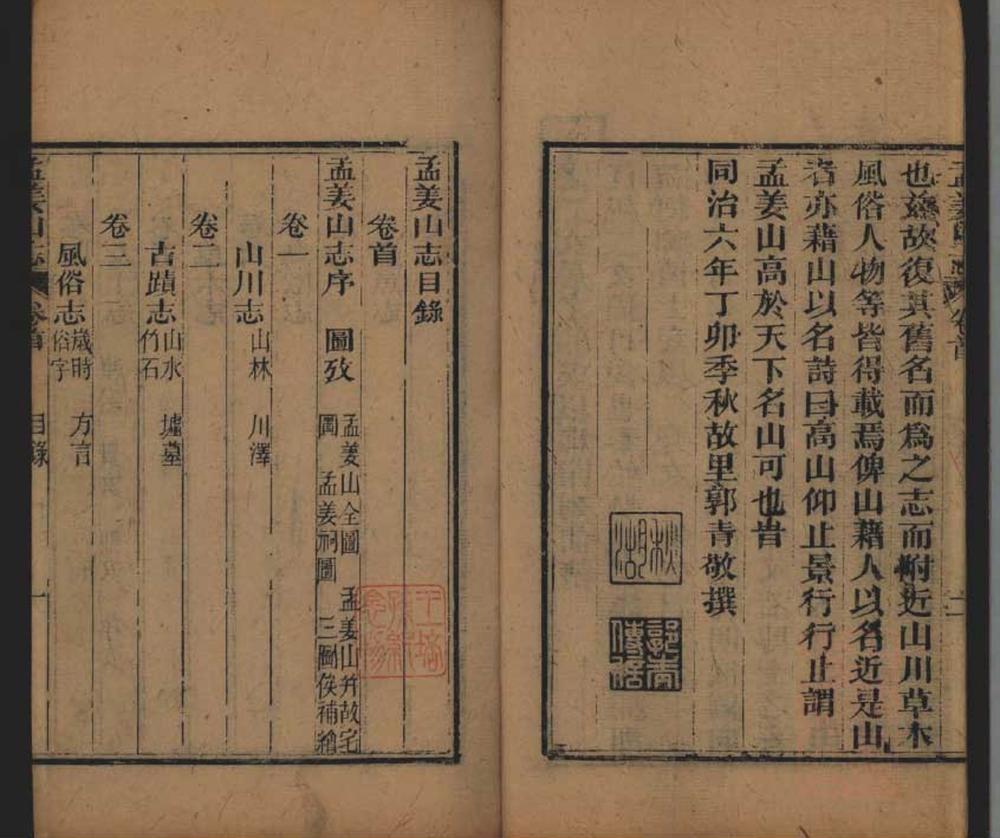 也茲故復其舊名而爲之志而附近山川草木
風俗人物等皆得載焉俾山藉人以名近是山
者亦藉山以名詩曰高山仰止景行行止謂
孟姜山高於天下名山可也旹
同治六年丁卯季秋故里郭青敬撰
孟姜山志目錄
卷首
孟姜山志序 圖攷 孟姜山全圖 孟姜山并故宅
圖 孟姜祠圖 三圖俟補繪
卷一
山川志 山林 川澤
卷二
古蹟志 山水 墟墓
竹石
卷三
風俗志 歲時 方言
俗字
孟姜山志 卷首 目錄 一